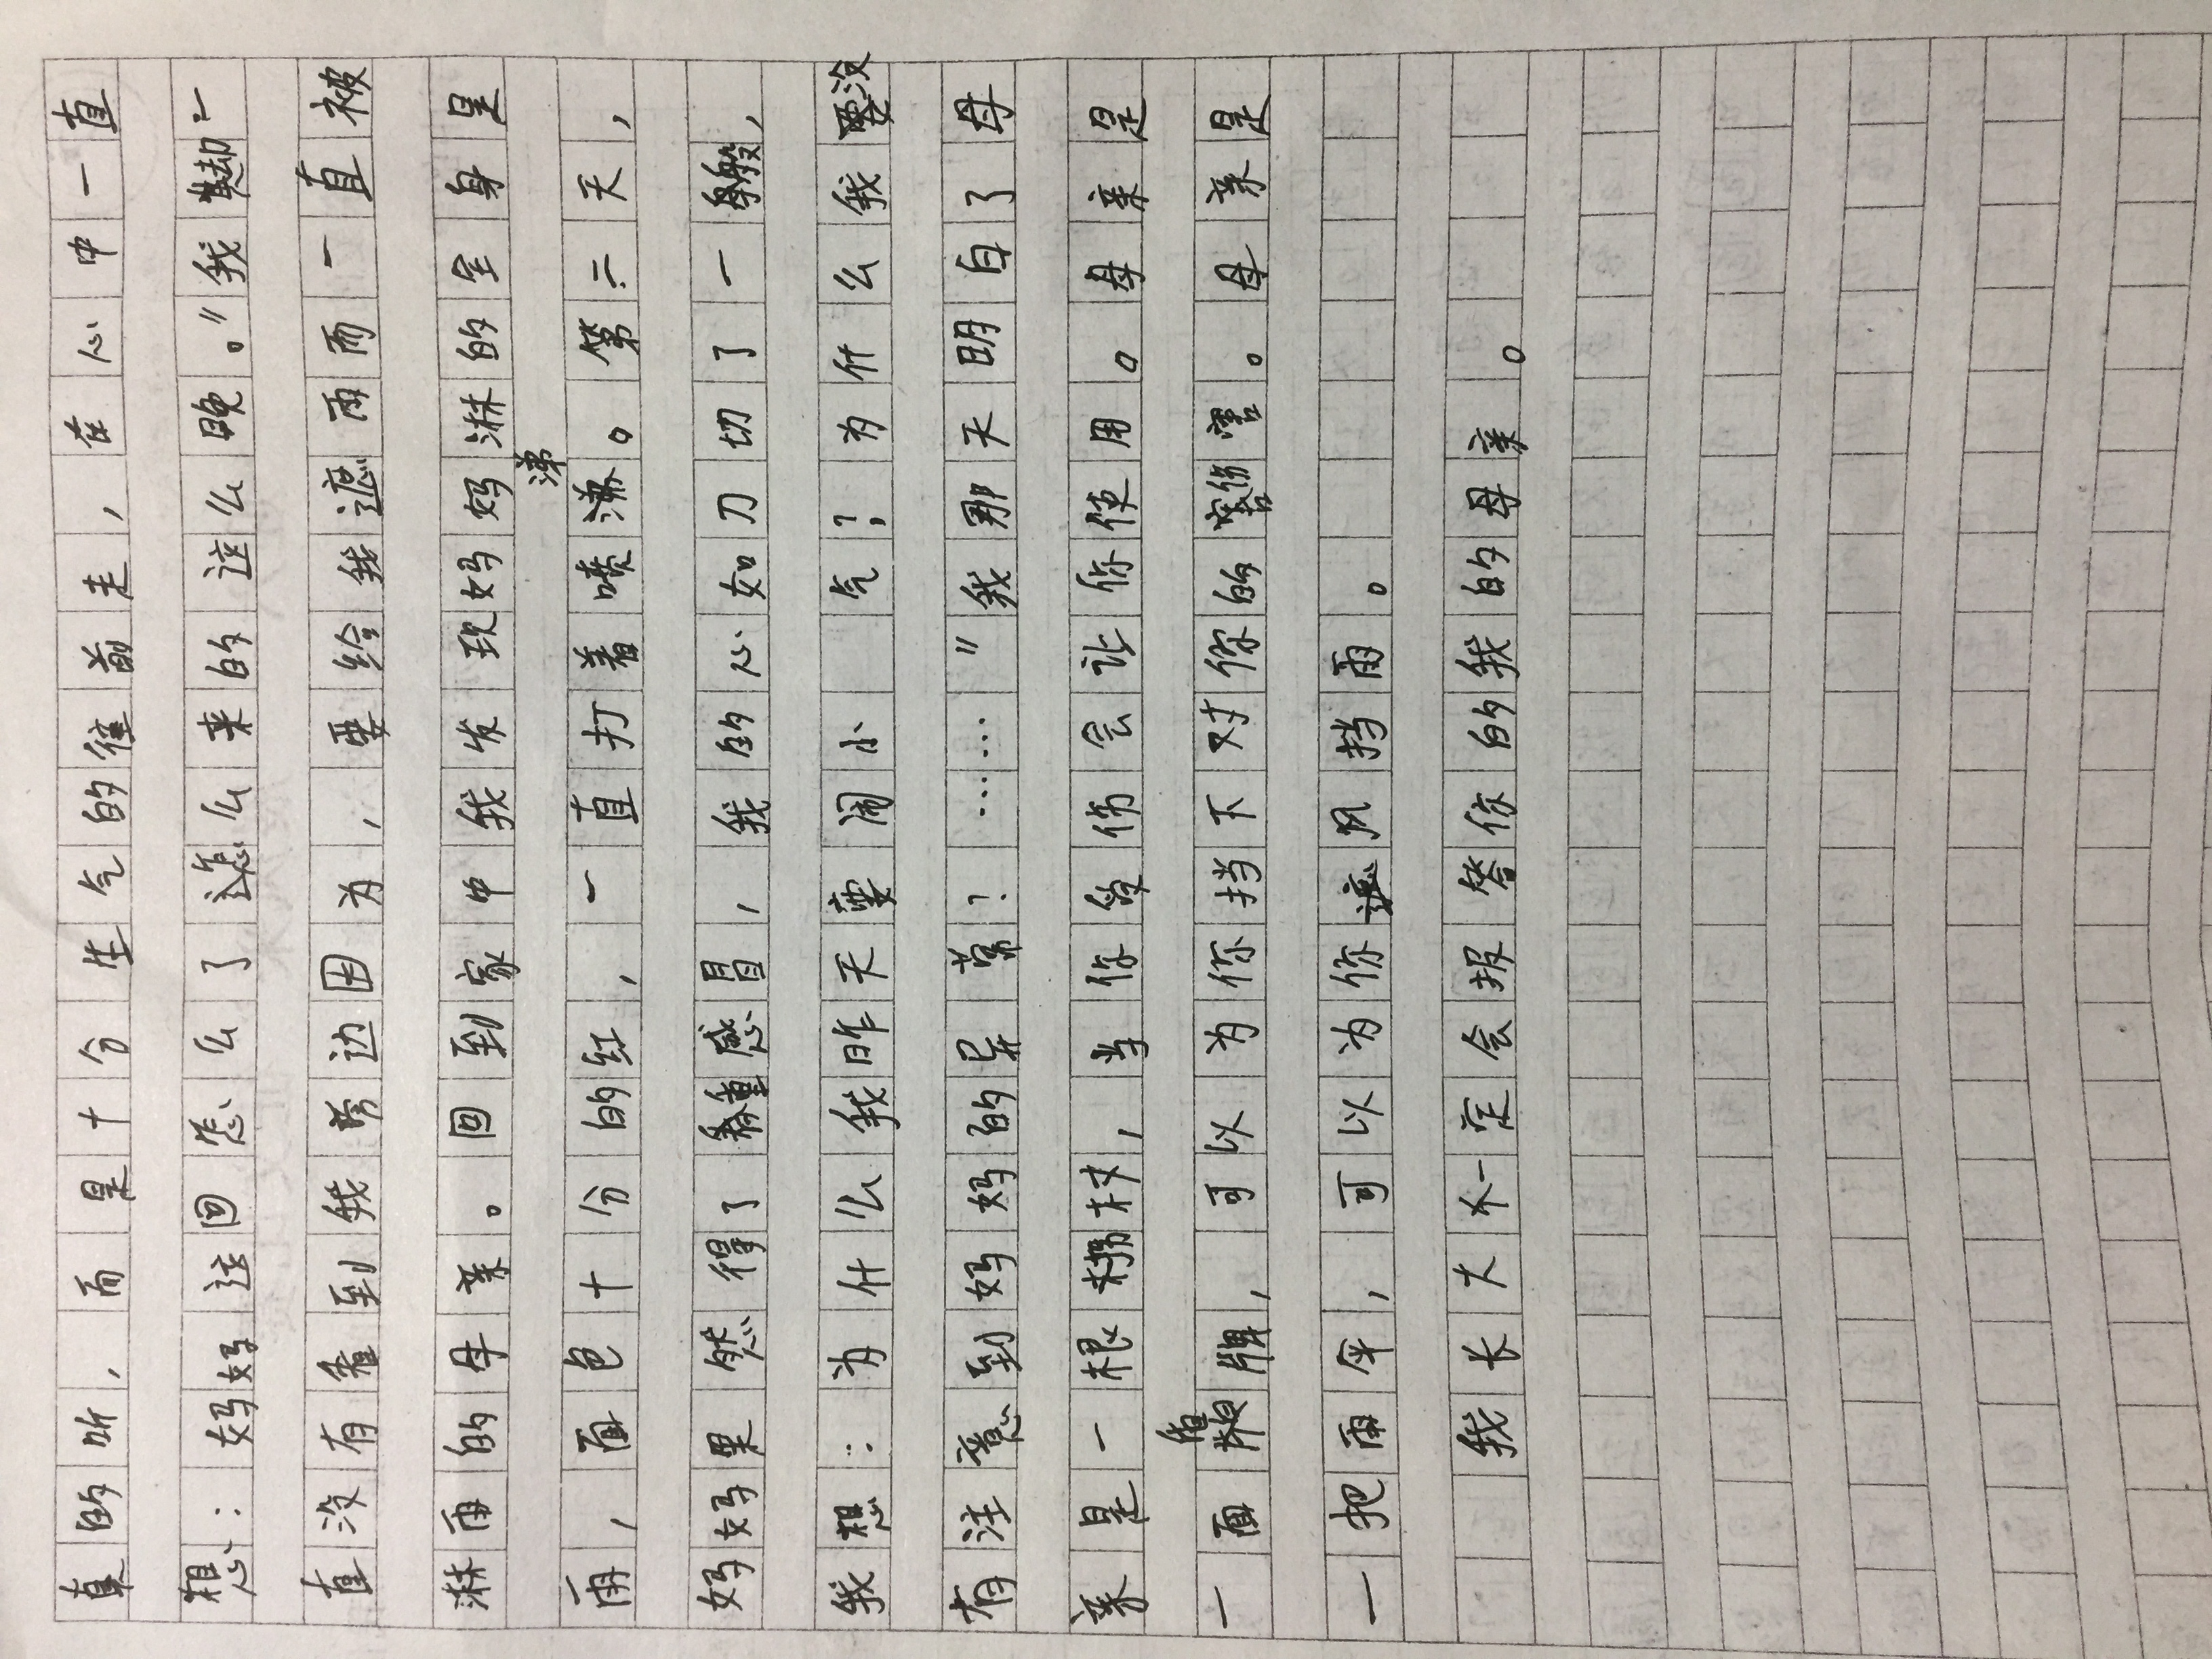 真的听，而是十分生气的往前走，在心中一直
想：妈妈这回怎么了怎么来的这么晚。"我却一
直没有看到我旁边因为，要给我遮雨而一直被
淋雨的母亲。回到家中我发现妈妈淋的全身是
雨，面色十分的红，一直打着喷涕。第二天，
妈妈果然得了重感冒，我的心如刀切了一般，
我想：为什么我昨天要闹小气？，为什么我没
有注意到妈妈的异常？……"我那天明白了母
亲是一根拐杖，当你受伤会让你使用。母亲是
一面盾牌，可以为你挡下对你的伤害。母亲是
一把雨伞，可以为你遮风挡雨。
我长大一定会报答你的我的母亲。